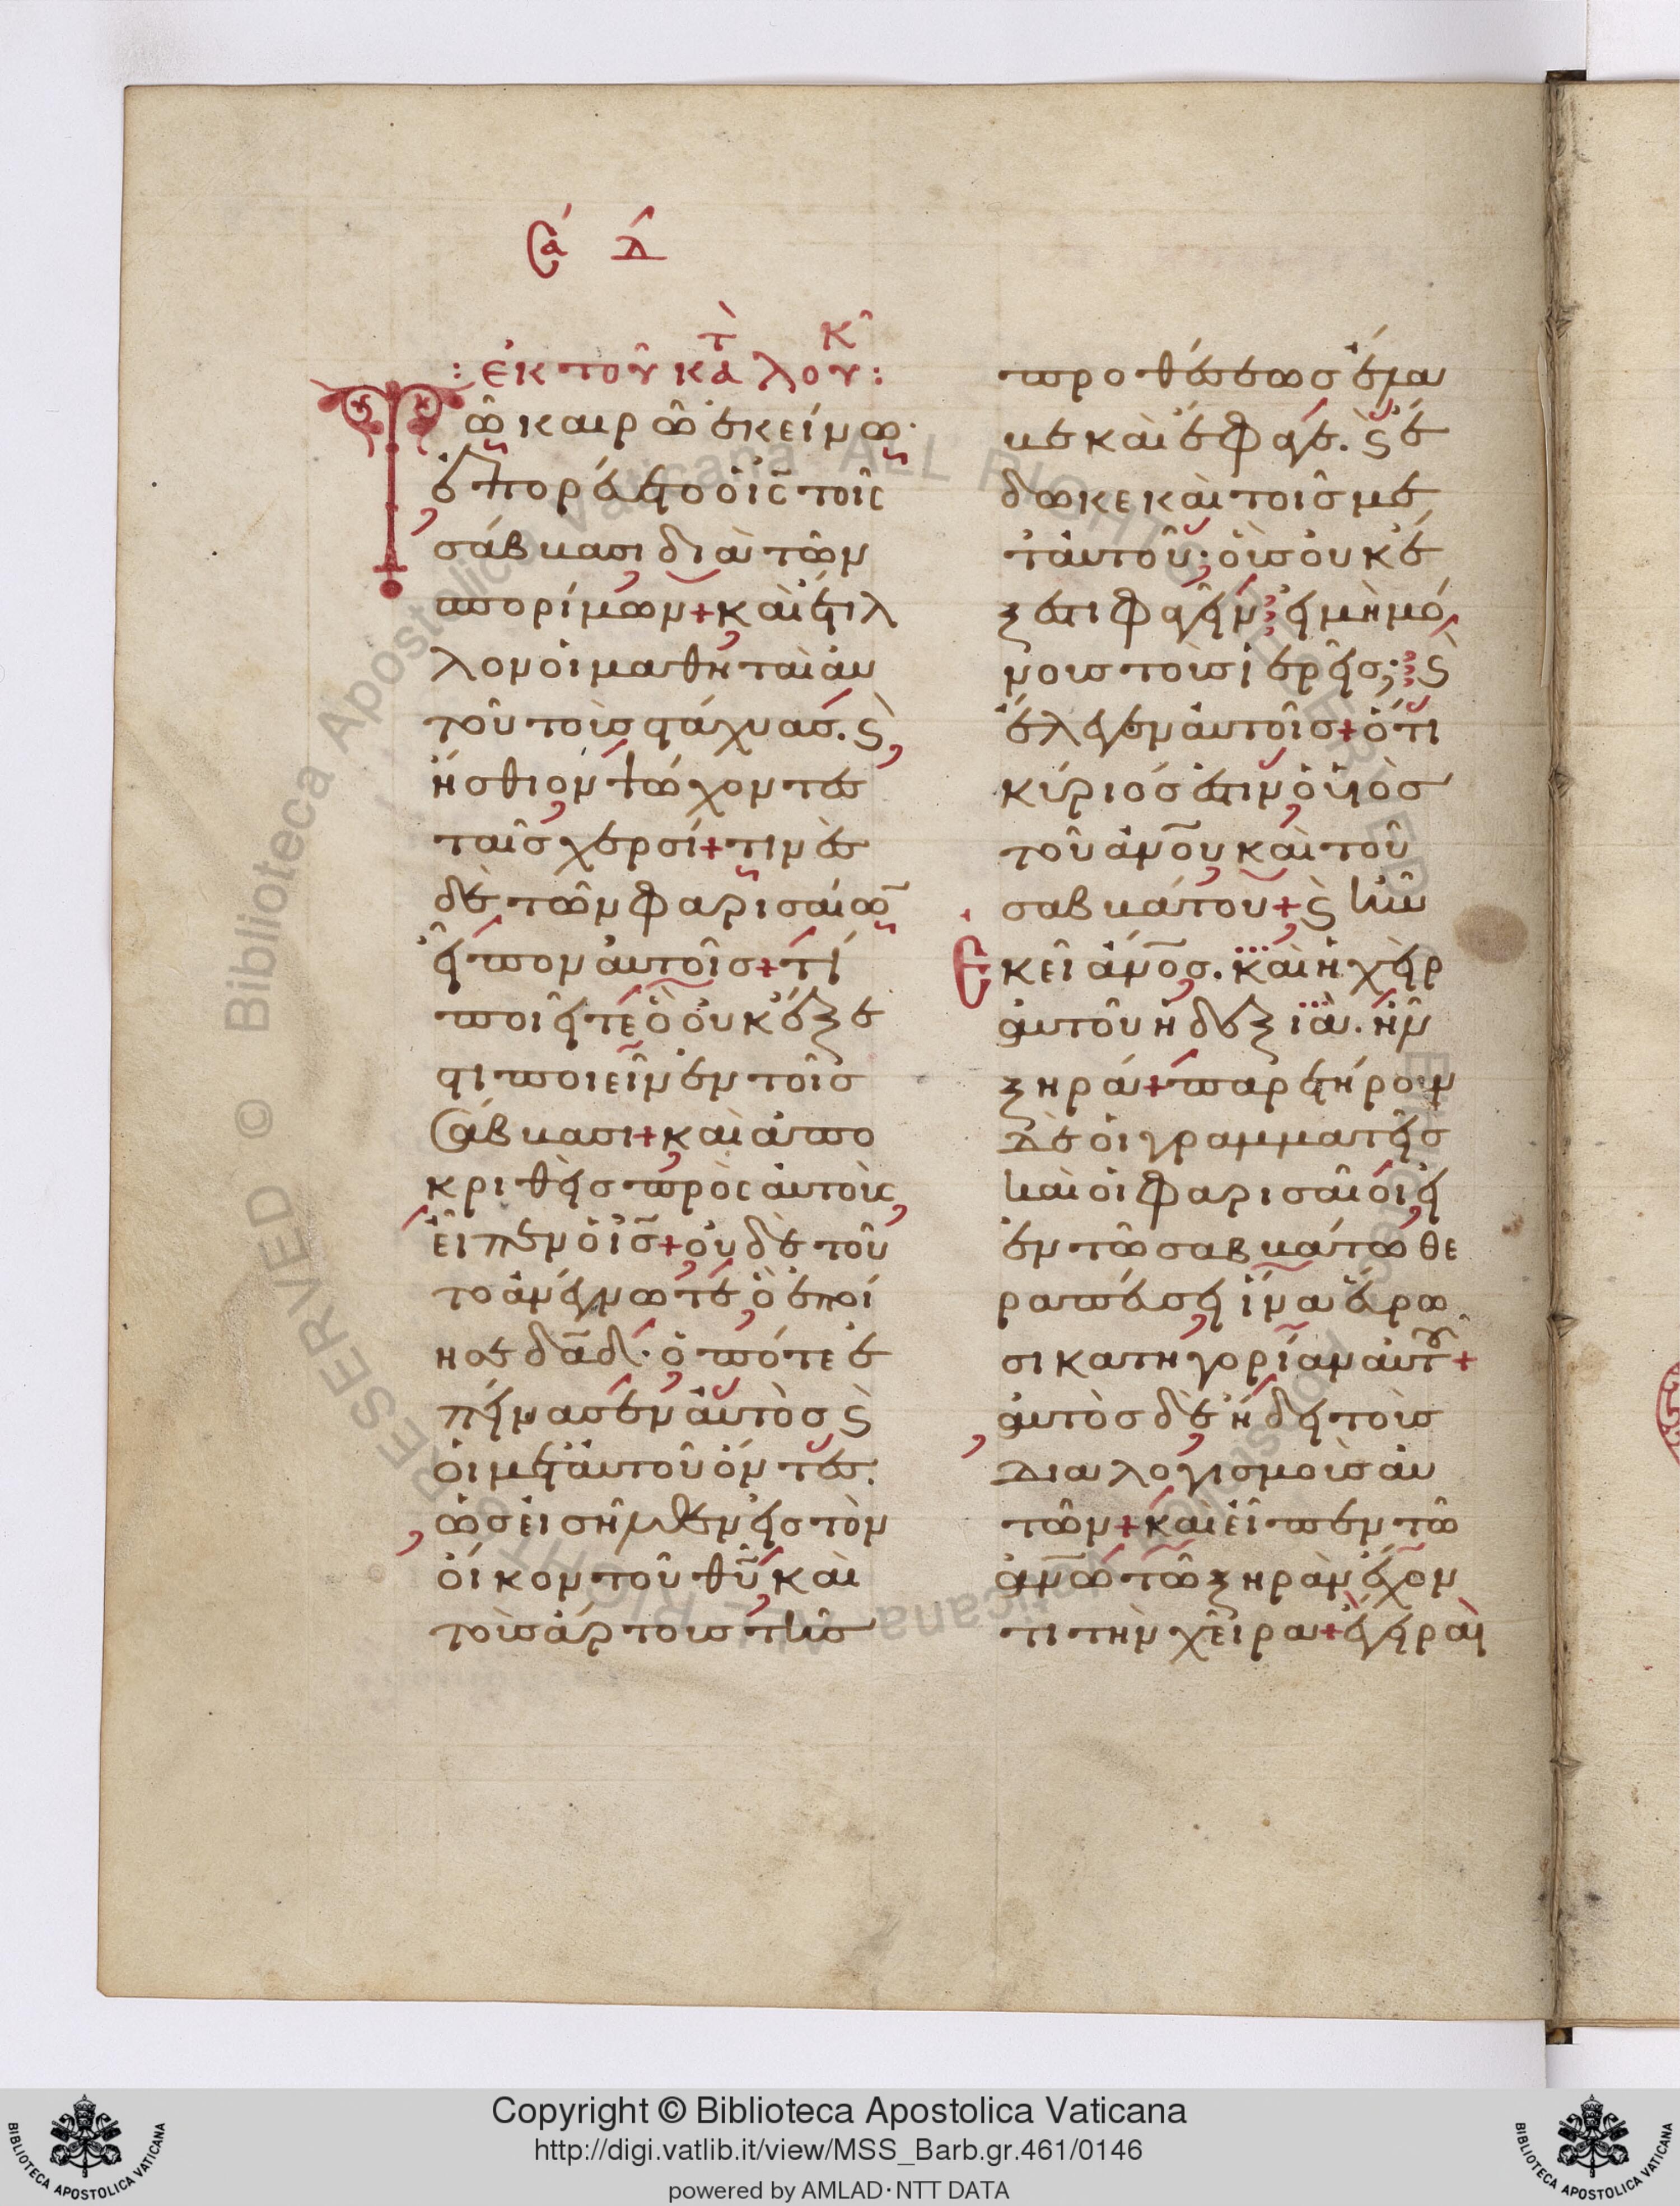 Σα Δ
: ἐκ τοῦ κατὰ λουκ :
Τῶ καιρῶ ἐκείνω·
ἐπορεύετο ὁ ἰς τοῖς
σάββασι διὰ τῶν
σπορίμων + καὶ ἔτιλ
λον οἱ μαθηταὶ αὐ
τοῦ τοὺς στάχυας. ϗ
ἤσθιον ψώχοντες
ταῖς χερσί + τινὲς
δὲ τῶν φαρισαίων
εἶπον αὐτοῖς + τί
ποιεῖτε ὃ οὐκ ἔξε
στι ποιεῖν ἐν τοῖς
σάββασι + καὶ ἀπο
κριθεὶς πρὸς αὐτοὺς
εἶπεν ὁ ἰς + οὐδὲ τοῦ
το ἀνέγνωτε ὃ ἐποί
ησε δαδ· ὁπότε ἐ
πείνασεν αὐτὸς ϗ
οἱ μετ' αὐτοῦ ὄντες.
ὡς εἰσῆλθεν εἰς τὸν
οἶκον τοῦ θυ καὶ
τοὺς ἄρτους τῆς
προθέσεως ἔλα
βε καὶ ἔφαγε. ϗ ἔ
δωκε καὶ τοῖς με
τ' αὐτοῦ; οὓς οὐκ ἔ
ξεστι φαγεῖν εἰ μὴ μό
νους τοὺς ἱερεῖς; ϗ
ἔλεγεν αὐτοῖς + ὅτι
κύριός ἐστιν ὁ υἱὸς
τοῦ ἀνου καὶ τοῦ
σαββάτου + ϗ ἦν
ἐκεῖ ἄνος. καὶ ἡ χεὶρ
αὐτοῦ ἡ δεξιὰ. ἦν
ξηρά + παρετήρουν
δὲ οἱ γραμματεῖς
καὶ οἱ φαρισαῖοι εἰ
ἐν τῶ σαββάτω θε
ραπεύσει ἵνα εὕρω
σι κατηγορίαν αὐτοῦ +
αὐτὸς δὲ ἤδει τοὺς
διαλογισμοὺς αὐ
τῶν + καὶ εἶπεν τῶ
ἀνω τῶ ξηρὰν ἔχον
τι τὴν χεῖρα + ἔγειραι
Copyright © Biblioteca Apostolica Vaticana
http://digi.vatlib.it/view/MSS_Barb.gr.461/0146
powered by AMLAD·NTT DATA